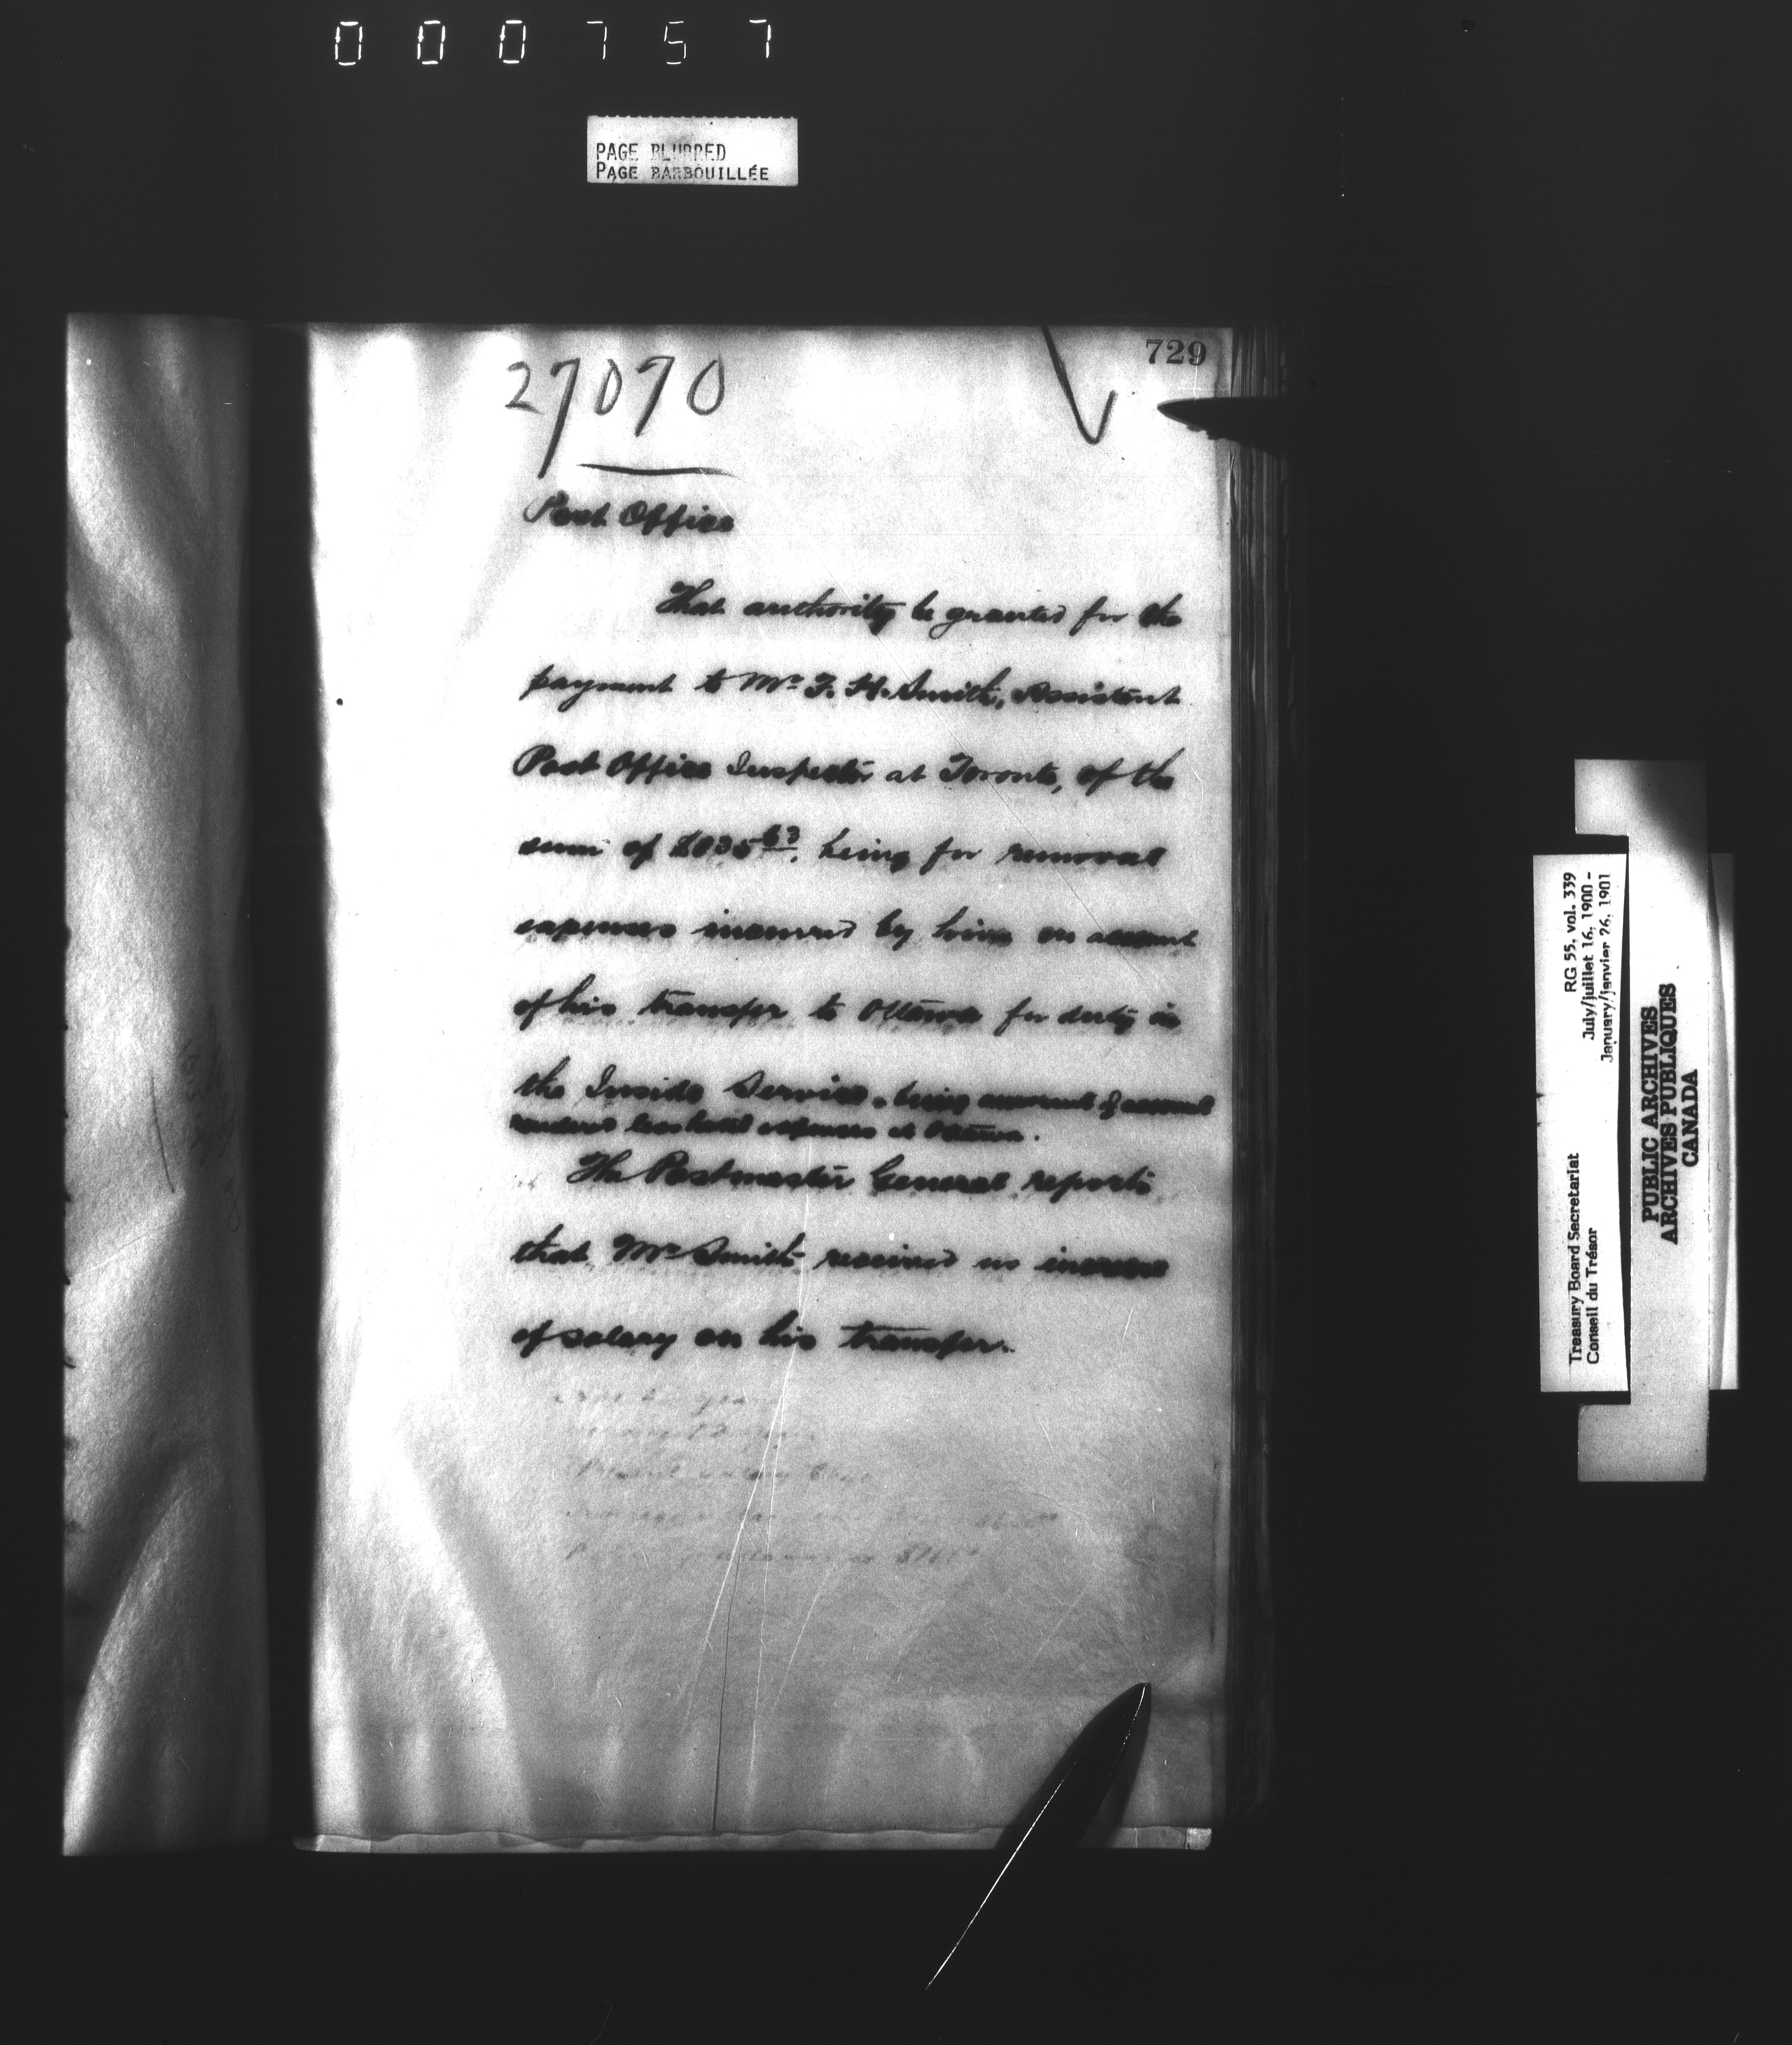 000757
PAGE BLURRED
PAGE BARBOUILLÉE
729
27070
Post Office
That authority be granted for the
payment to Mr F. H. Smith, Assistant
Post Office Inspector at Toronto, of the
sum of being for removal
expenses incurred by him on account
of his transfer to Ottawa for duty in
the Inside Service, being amount of account
rendered less hotel expenses at Ottawa.
The Postmaster General reports
that Mr Smith received no increase
of salary on his transfer.
RG 55, vol. 339
July/juillet 16, 1900 -
January/janvier 26, 1901
Treasury Board Secretariat
Conseil du Trésor
PUBLIC ARCHIVES
ARCHIVES PUBLIQUES
CANADA